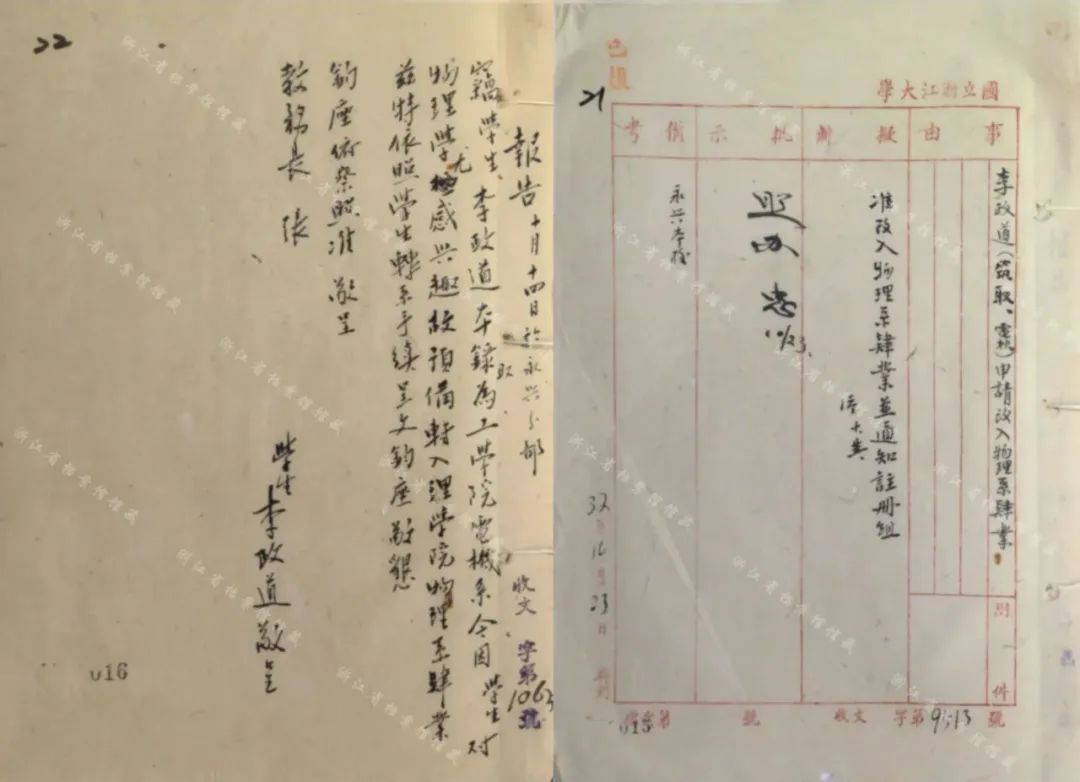 22
報告 十月十四日於永兴分部
竊學生李政道本錄取為工學院電機系今因學生对
物理學尤感兴趣故預備轉入理學院物理系肄業
兹特依照學生轉系手续呈文鈞座敬懇
鈞座俯察照准 敬呈
教務長 張
學生 李政道敬呈
收文 字第1063號
016
21
國立浙江大學
事由
擬辦
批示
備考
李政道(取、電機)申請改入物理系肄業
准改入物理系肄業並通知註冊組
照办
10/23
永兴本校
32年10月23日
附件
收文 字第9513號
015
浙江省档案馆馆藏